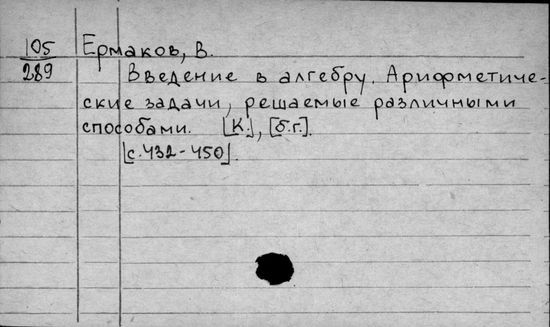 105 Ермаков, В.
289 Введение в алгебру. Арифметиче-
ские задачи, решаемые различными
способами. [К.], [б.г.].
[с. 432-450].